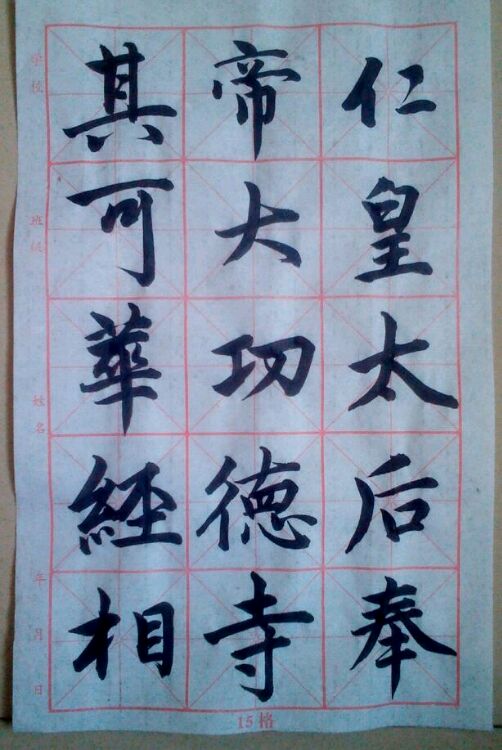 仁皇太后奉
帝大功德寺
其可華經相
学校
班级
姓名
年月日
15格